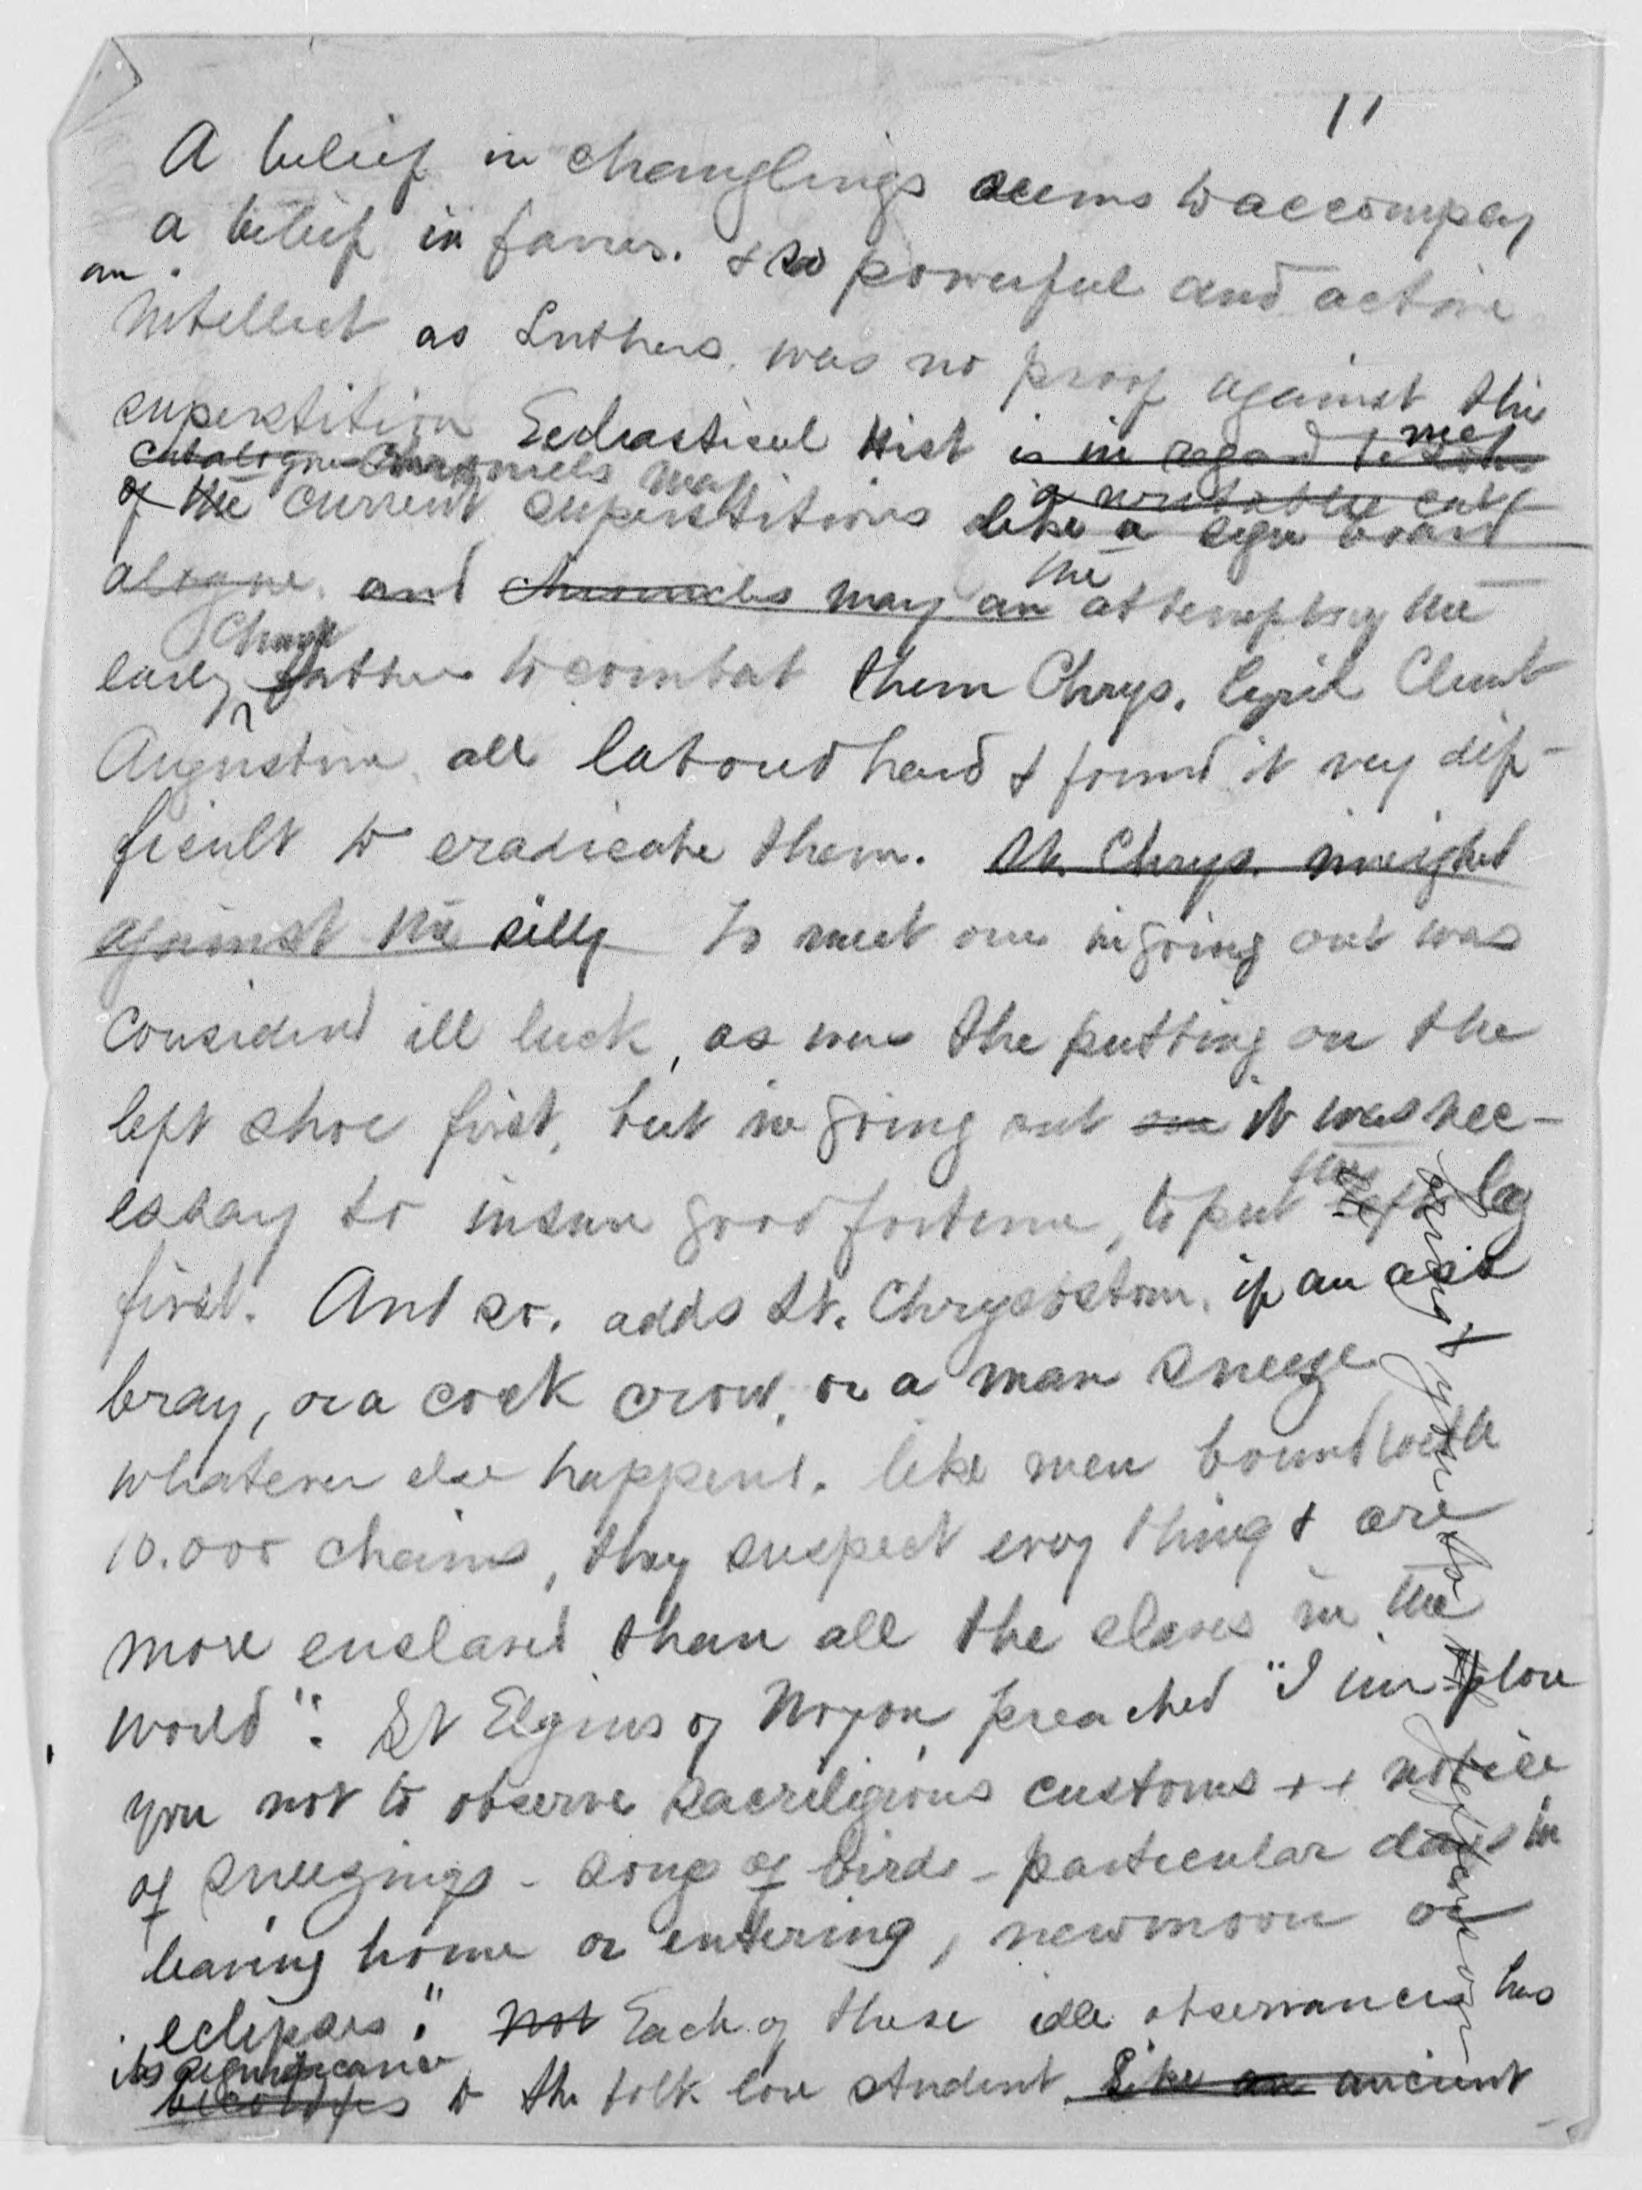 11
A belief in changlings seems to accompany
a belief in faries. & so powerful and active
an
intellect as Luthers was no proof against this
superstition Ecclesastical Hist is in regard to
catalogue Chronicles may
of the current superstitions like a sign board
a veritable cat-
alogue. and chronicles may an attempting the
the
Church
early father to combat them Chrys. Cyril Clemt
Augustine all labourd hard & found it very dif-
ficult to eradicate them. St. Chrys. inveighed
against the silly To meet one in going out was
considered ill luck, as was the putting on the
left shoe first, but in going out one it was nec-
essary to insure good fortune, to put left leg
first. And so, adds St. Chrysostom, if an ass
bray, or a cock crow, or a man sneeze
whatever else happens. like men bound with
10.000 chains, they suspect evey thing & are
more enslaved than all the slaves in the
world". St Elgius of Noyon preached "I implore
you not to observe sacreligious customs ++ notice
of sneezings - songs of birds - particular days in
leaving home or entering, newmoon or
eclipses". Not Each of these idle observances has
its significance
becomes to the folk lore student like an ancient